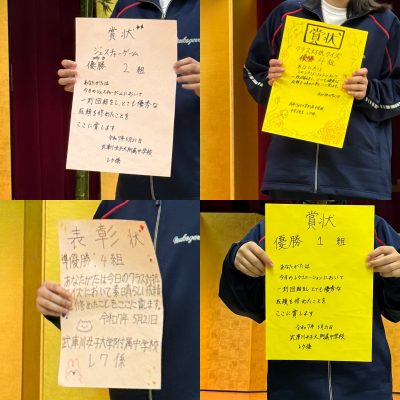 賞状
ジェスチャーゲーム
優勝 2組
あなたがたは
今日のジェスチャーゲームにおいて
一致団結をし、とても優秀な
成績を修めたことを
ここに賞します
令和7年 5月21日
武庫川女子大附属中学校
レク係
賞状
クラス対抗クイズ
優勝 4組
あなたがたは
賞状
優勝 1組
あなたがたは
今日のレクリエーションにおいて
一致団結をし、とても優秀な
成績を修めたことを
ここに賞します
令和7年 5月21日
武庫川女子大附属中学校
レク係
表彰状
準優勝:4組
あなたがたは今日のクラス対抗
クイズにおいて素晴らしい成績
を修めたことをここに賞します。
令和7年 5月21日
武庫川女子大学付属中学校
レク係